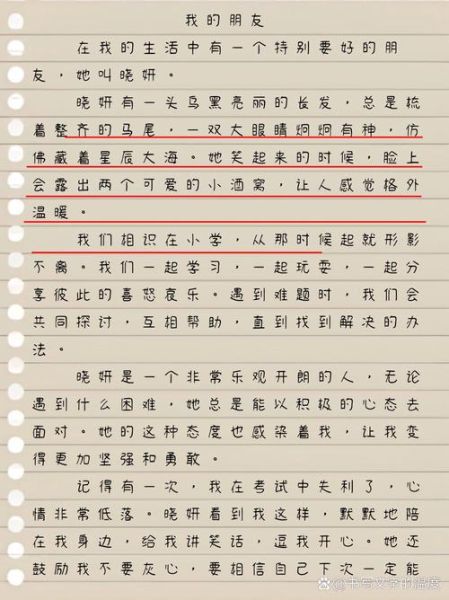 我的朋友
在我的生活中有一个特别要好的朋
友，她叫晓妍。
晓妍有一头乌黑亮丽的长发，总是梳
着整齐的马尾，一双大眼睛炯炯有神，仿
佛藏着星辰大海。她笑起来的时候，脸上
会露出两个可爱的小酒窝，让人感觉格外
温暖。
我们相识在小学，从那时候起就形影
不离。我们一起学习，一起玩耍，一起分
享彼此的喜怒哀乐。遇到难题时，我们会
共同探讨，互相帮助，直到找到解决的办
法。
晓妍是一个非常乐观开朗的人，无论
遇到什么困难，她总是能以积极的心态去
面对。她的这种态度也感染着我，让我变
得更加坚强和勇敢。
记得有一次，我在考试中失利了，心
情非常低落。晓妍看到我这样，默默地陪
在我身边，给我讲笑话，逗我开心。她还
鼓励我不要灰心，要相信自己下次一定能
@书写文字的温度